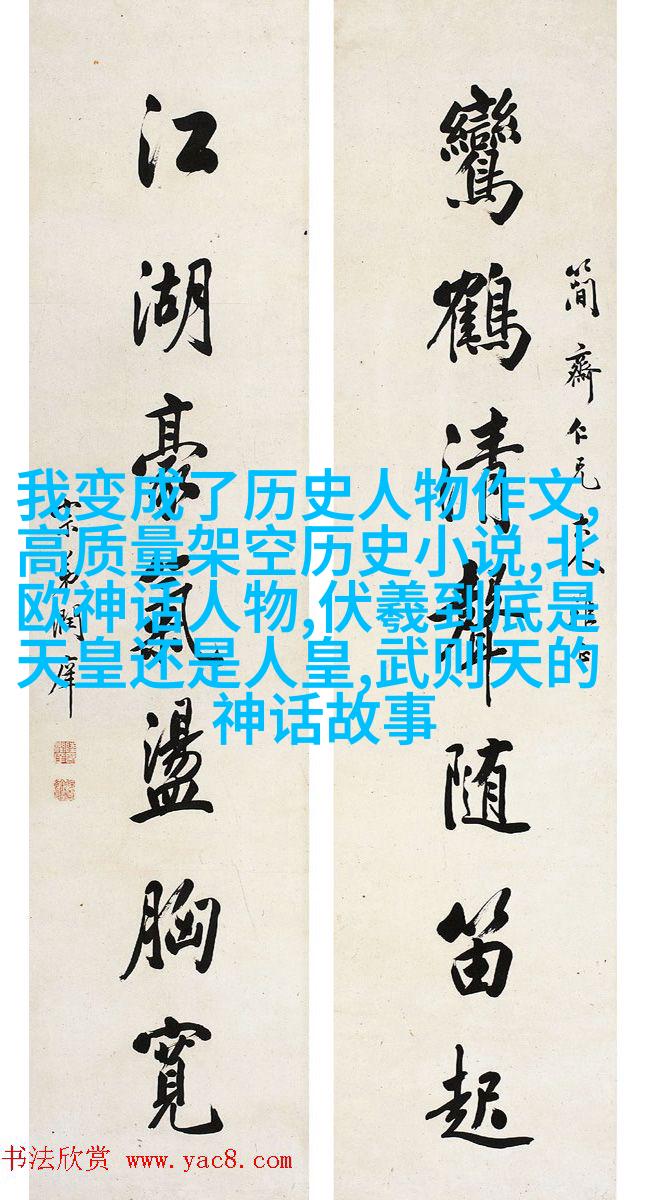 鸞鶴清聲随笛起
簡齋仁兄大人
江湖豪氣盪胸寬
弟潤庠
我变成了历史人物作文,
高质量架空历史小说,北
欧神话人物,伏羲到底是
天皇还是人皇,武则天的
神话故事
书法欣赏 www.yac8.com